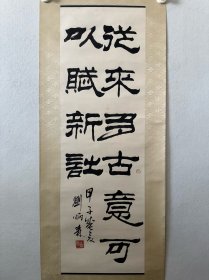 從來多古意可
以賦新詩
甲子
劉炳森